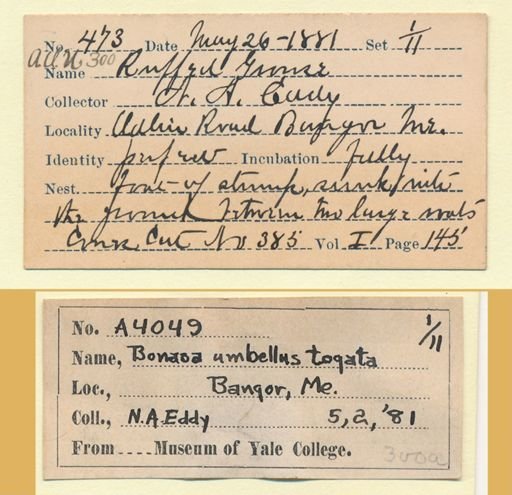 No. 473 Date May 26-1881 Set 1/11
AOU 300
Name Ruffed Grouse
Collector N. A. Eddy
Locality Road Bangor Me.
Identity perfect Incubation fully
Nest. foot of stump, sunk into
the ground between two large roots
Cat No 385 Vol I Page 145
No. A4049 1/11
Name, Bonasa umbellus togata
Loc., Bangor, Me.
Coll., N.A. Eddy 5, 2, '81
From Museum of Yale College.
300a